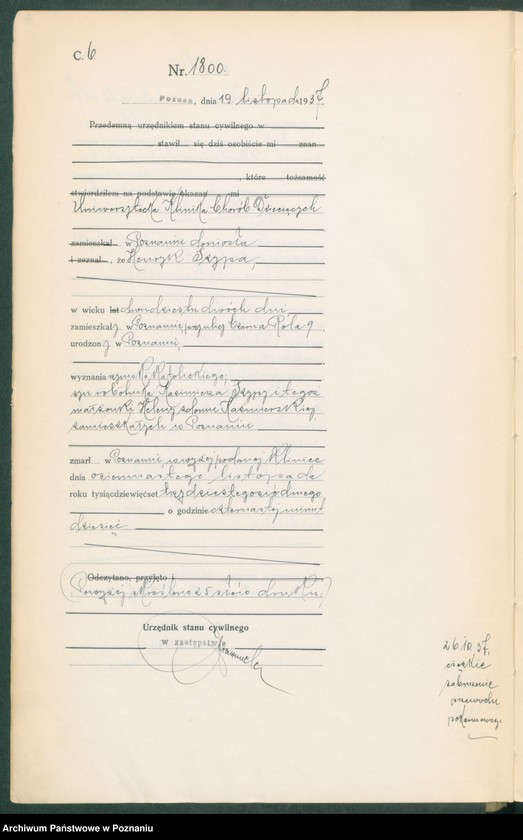 C. 6.
Nr. 1800.
Poznań, dnia 19 listopada 1937.
Przedemną urzędnikiem stanu cywilnego w
stawił się dziś osobiście mi znan
, które tożsamość
stwierdziłem na podstawie okazan mi
Uniwersytecka Klinika Chorób Dziecięcych
zamieszkał w Poznaniu doniosła
i zeznał, że Henryk Szypa,
w wieku lat dwudziestu dwóch dni
zamieszkał y w Poznaniu, przy ulicy Czarna Rola 9
urodzon y w Poznaniu,
wyznania rzymsko katolickiego,
syn robotnika Kazimierza Szypy i tegoż
małżonki Heleny z domu Kaźmierskiej,
zamieszkałych w Poznaniu
zmarł w Poznaniu, w wyżej podanej Klinice
dnia osiemnastego listopada
roku tysiącdziewięćset trzydziestegosiódmego
o godzinie czternastej minut
dziesięć
Odczytano, przyjęto i
(Powyżej skreślono 25 słów druku.)
Urzędnik stanu cywilnego
w zastępstwie
26.10.37.
ciężkie
zaburzenie
przewodu
pokarmoweg.
Archiwum Państwowe w Poznaniu